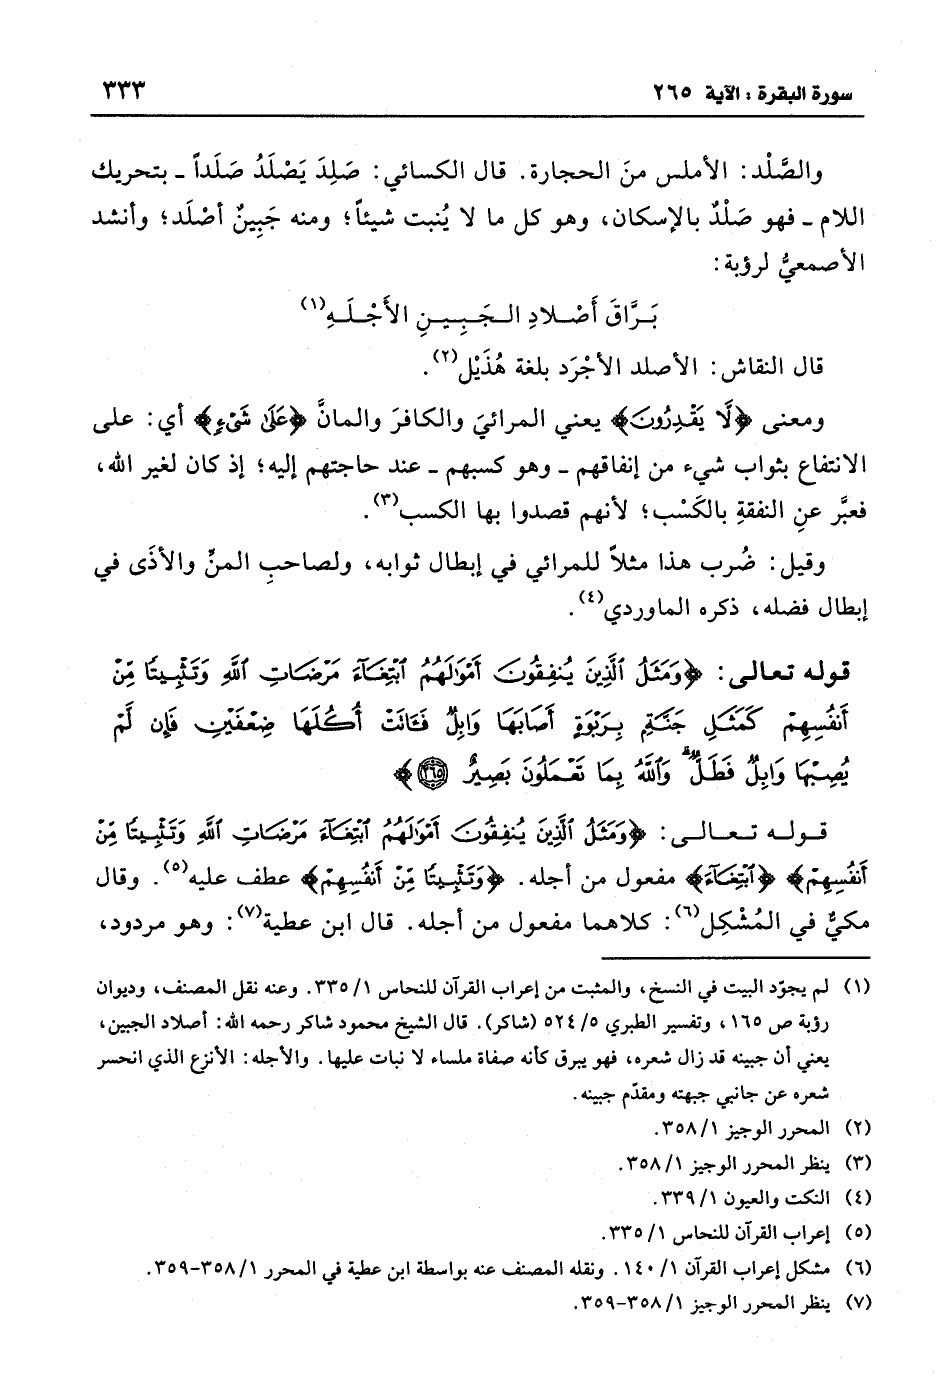 سورة البقرة : الآية ٢٦٥ ٣٣٣
والصَّلْد: الأملس منَ الحجارة. قال الكسائي: صَلِدَ يَصْلَدُ صَلَداً ـ بتحريك
اللام ـ فهو صَلْدٌ بالإسكان، وهو كل ما لا يُنبت شيئاً؛ ومنه جَبِينٌ أصْلَد؛ وأنشد
الأصمعيُّ لرؤبة:
بَـرَّاقَ أَصْـلادِ الـجَـبِـيـنِ الأَجْـلَـهِ(١)
قال النقاش: الأصلد الأجْرَد بلغة هُذَيْل(٢).
ومعنى ﴿لَّا يَقْدِرُونَ﴾ يعني المرائيَ والكافرَ والمانَّ ﴿عَلَىٰ شَىْءٍ﴾ أي: على
الانتفاع بثواب شيء من إنفاقهم ـ وهو كسبهم ـ عند حاجتهم إليه؛ إذ كان لغير الله،
فعبَّر عنِ النفقةِ بالكَسْب؛ لأنهم قصدوا بها الكسب(٣).
وقيل: ضُرب هذا مثلاً للمرائي في إبطال ثوابه، ولصاحبِ المنِّ والأذَى في
إبطال فضله، ذكره الماوردي(٤).
قوله تعالى: ﴿وَمَثَلُ ٱلَّذِينَ يُنفِقُونَ أَمْوَٰلَهُمُ ٱبْتِغَآءَ مَرْضَاتِ ٱللَّهِ وَتَثْبِيتًا مِّنْ
أَنفُسِهِمْ كَمَثَلِ جَنَّةٍۭ بِرَبْوَةٍ أَصَابَهَا وَابِلٌ فَـَٔاتَتْ أُكُلَهَا ضِعْفَيْنِ فَإِن لَّمْ
يُصِبْهَا وَابِلٌ فَطَلٌّ ۗ وَٱللَّهُ بِمَا تَعْمَلُونَ بَصِيرٌ ٢٦٥﴾
قـولـه تـعـالـى: ﴿وَمَثَلُ ٱلَّذِينَ يُنفِقُونَ أَمْوَٰلَهُمُ ٱبْتِغَآءَ مَرْضَاتِ ٱللَّهِ وَتَثْبِيتًا مِّنْ
أَنفُسِهِمْ﴾ ﴿ٱبْتِغَآءَ﴾ مفعول من أجله. ﴿وَتَثْبِيتًا مِّنْ أَنفُسِهِمْ﴾ عطف عليه(٥). وقال
مكيٌّ في المُشْكِل(٦): كلاهما مفعول من أجله. قال ابن عطية(٧): وهو مردود،
(١) لم يجوّد البيت في النسخ، والمثبت من إعراب القرآن للنحاس ١/ ٣٣٥. وعنه نقل المصنف، وديوان
رؤبة ص ١٦٥، وتفسير الطبري ٥/ ٥٢٤ (شاكر). قال الشيخ محمود شاكر رحمه الله: أصلاد الجبين،
يعني أن جبينه قد زال شعره، فهو يبرق كأنه صفاة ملساء لا نبات عليها. والأجله: الأنزع الذي انحسر
شعره عن جانبي جبهته ومقدّم جبينه.
(٢) المحرر الوجيز ١/ ٣٥٨.
(٣) ينظر المحرر الوجيز ١/ ٣٥٨.
(٤) النكت والعيون ١/ ٣٣٩.
(٥) إعراب القرآن للنحاس ١/ ٣٣٥.
(٦) مشكل إعراب القرآن ١/ ١٤٠. ونقله المصنف عنه بواسطة ابن عطية في المحرر ١/ ٣٥٨-٣٥٩.
(٧) ينظر المحرر الوجيز ١/ ٣٥٨-٣٥٩.